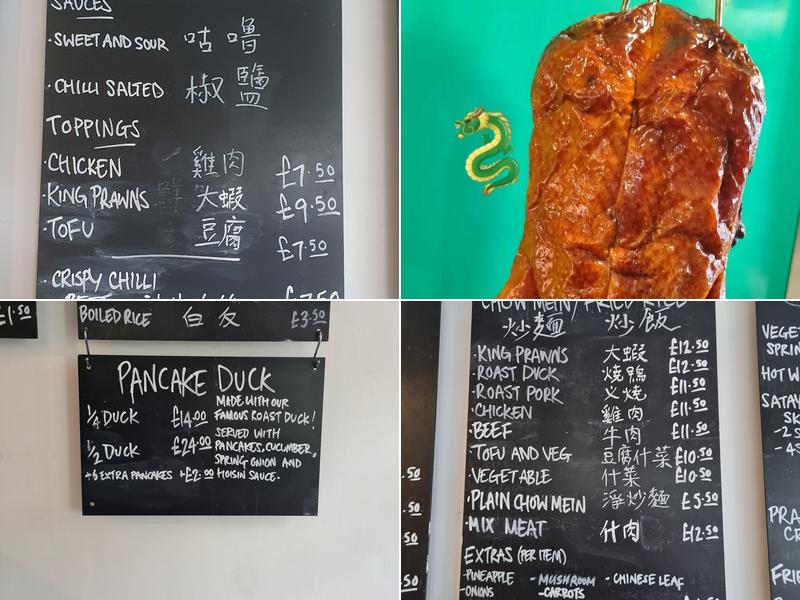 SAUCES
·SWEET AND SOUR 咕嚕
·CHILLI SALTED 椒鹽
TOPPINGS
·CHICKEN 雞肉 £7.50
·KING PRAWNS 大蝦 £9.50
·TOFU 豆腐 £7.50
·CRISPY CHILLI
£1.50
BOILED RICE 白反 £3.50
PANCAKE DUCK
1/4 DUCK £14.00
1/2 DUCK £24.00
+6 EXTRA PANCAKES +£2.00
MADE WITH OUR
FAMOUS ROAST DUCK!
SERVED WITH
PANCAKES, CUCUMBER,
SPRING ONION AND
HOISIN SAUCE.
CHOW MEIN / FRIED RICE
炒麵 炒飯
·KING PRAWNS 大蝦 £12.50
·ROAST DUCK 燒鴨 £12.50
·ROAST PORK 义燒 £11.50
·CHICKEN 雞肉 £11.50
·BEEF 牛肉 £11.50
·TOFU AND VEG 豆腐什菜 £10.50
·VEGETABLE 什菜 £10.50
·PLAIN CHOW MEIN 淨炒麵 £5.50
·MIX MEAT 什肉 £12.50
EXTRAS (PER ITEM)
-PINEAPPLE -MUSHROOM -CHINESE LEAF
-ONIONS -CARROTS
.50
50
50
VEGE
SPRIN
HOT W
SATAY
SK
-2 S
-4 S
PRA
CR
FRIE